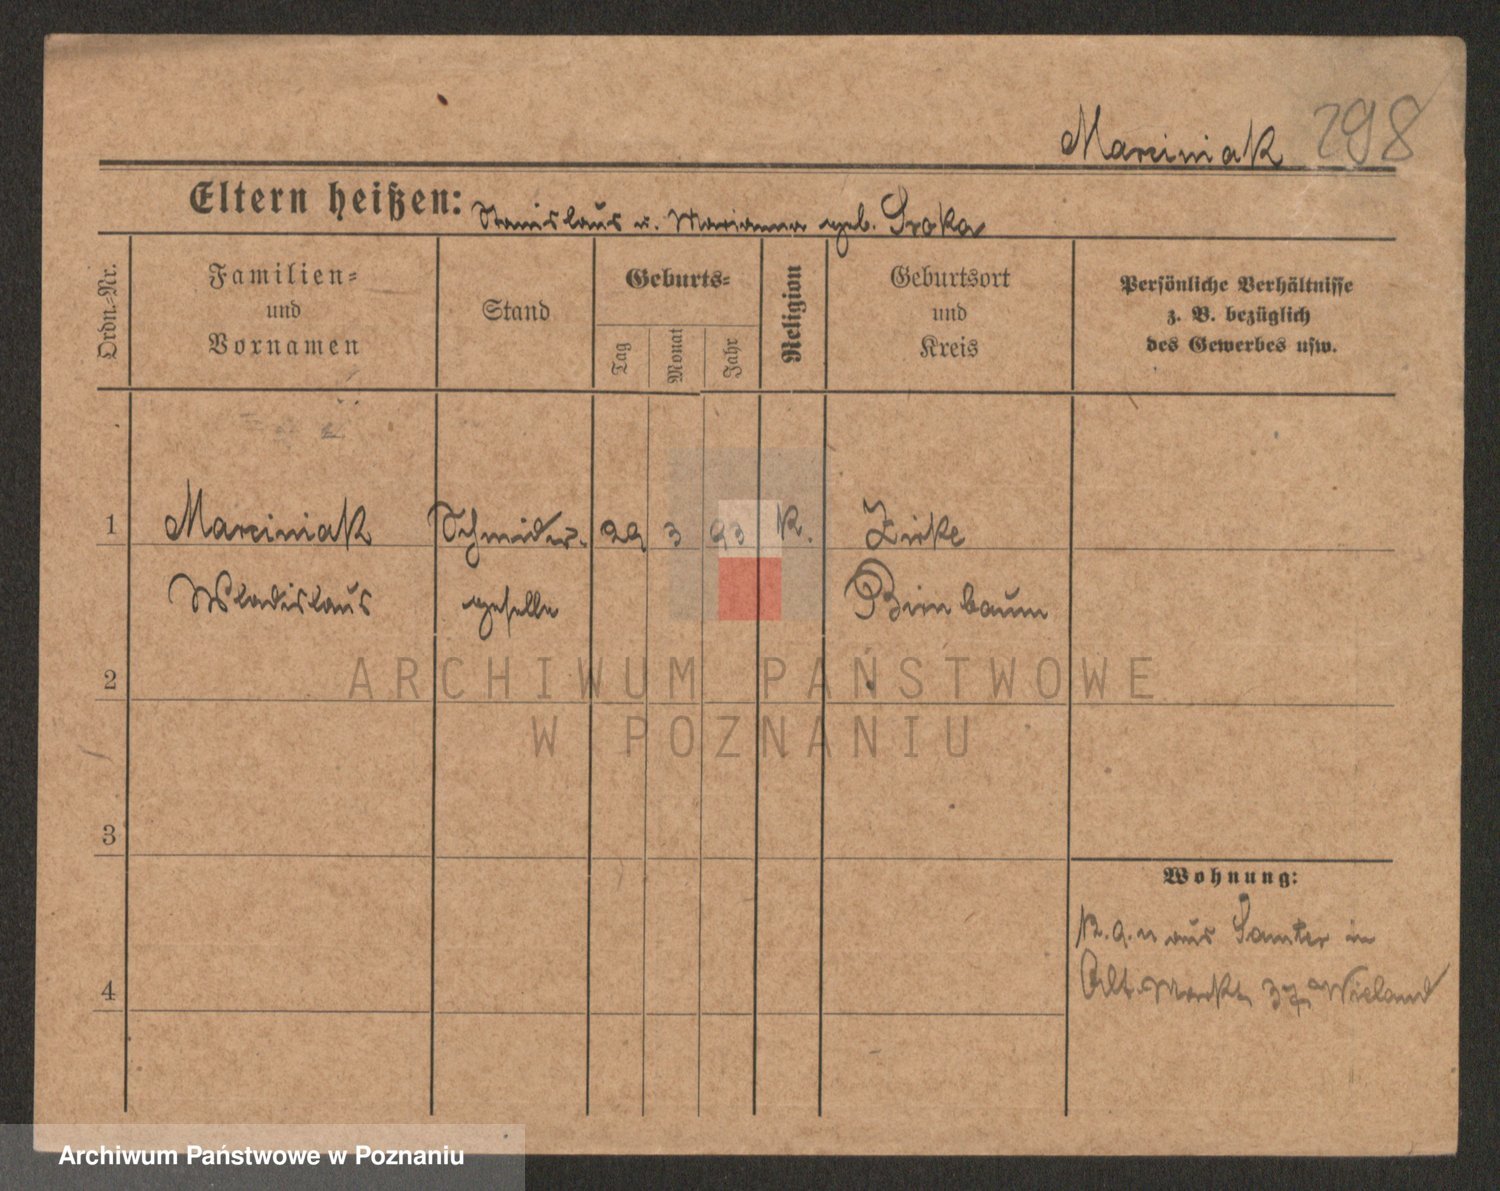 Marciniak 298
Eltern heißen: Stanislaus u. Marianna geb. Sroka
Ordn.-Nr.
Familien-
und
Vornamen
Stand
Geburts-
Tag
Monat
Jahr
Religion
Geburtsort
und
Kreis
Persönliche Verhältnisse
z. B. bezüglich
des Gewerbes usw.
1 Marciniak Schneider- 29 3 93 K. Zirke
Wladislaus geselle Birnbaum
2
3
4
Wohnung:
aus Samter in
Alt. Markt 37 Wieland
ARCHIWUM PAŃSTWOWE
W POZNANIU
Archiwum Państwowe w Poznaniu